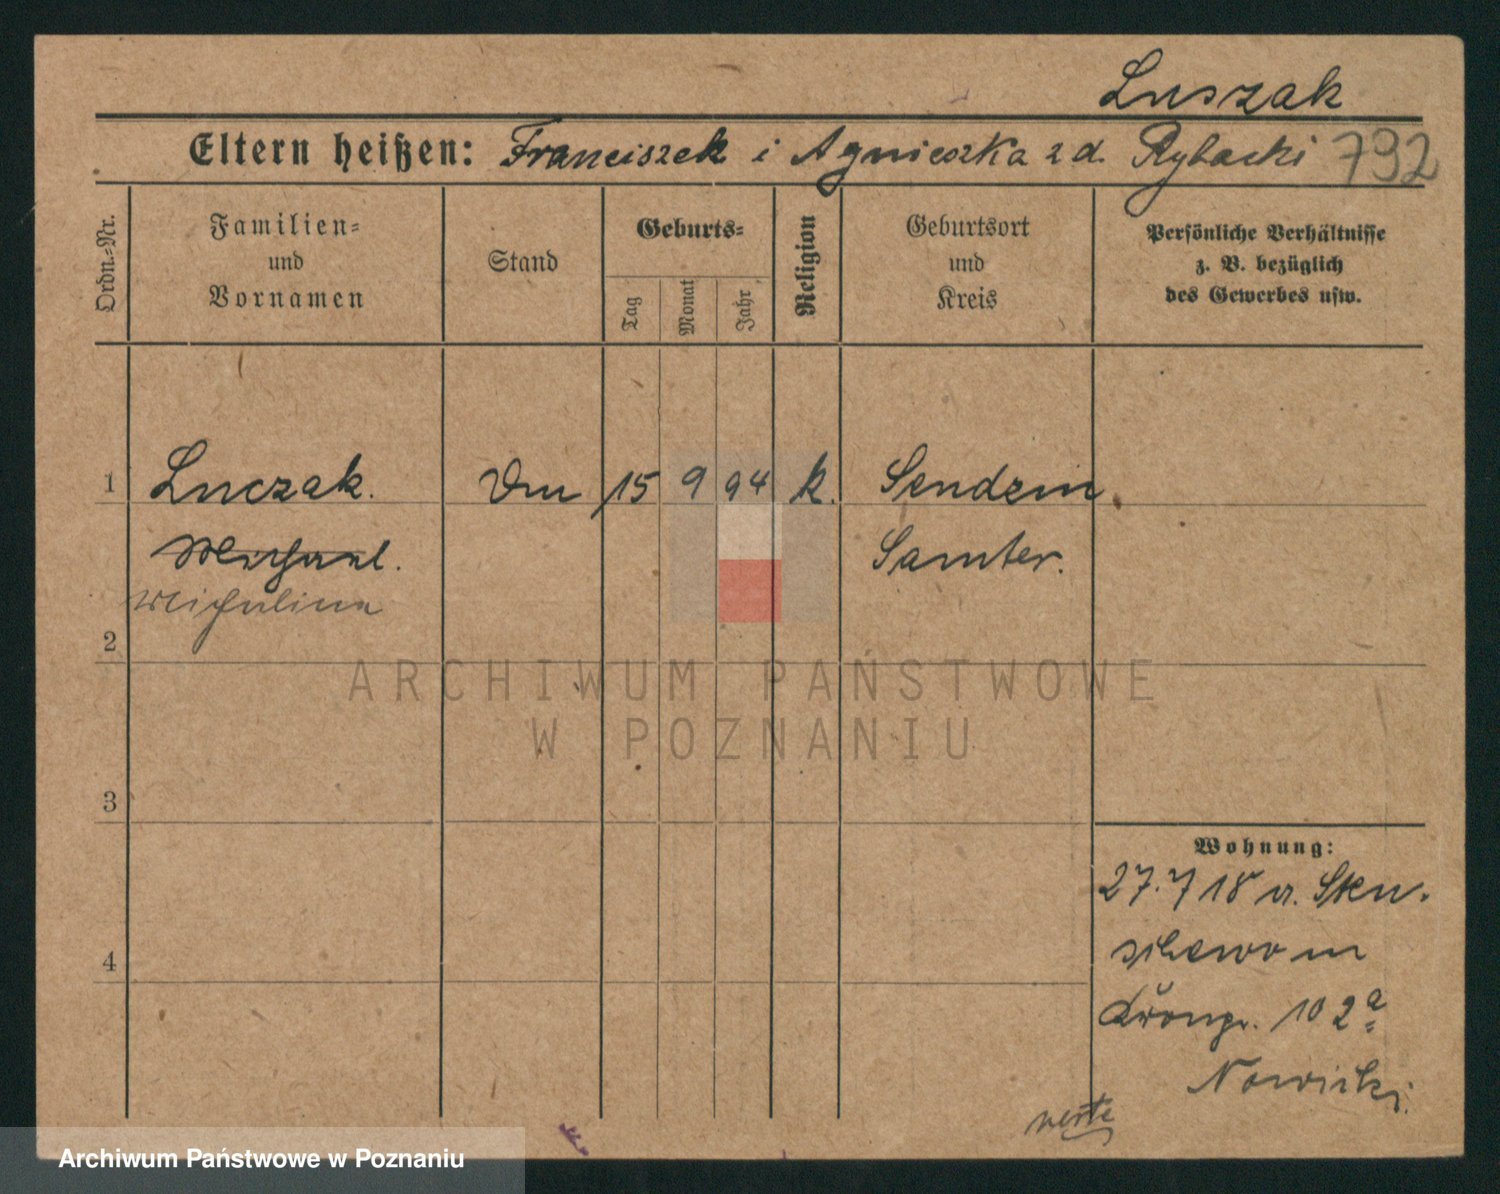 Luszak
Eltern heißen: Franciszek i Agnieszka z d. Rybacki 792
Ordn.-Nr.
Familien-
und
Vornamen
Stand
Geburts-
Tag
Monat
Jahr
Religion
Geburtsort
und
Kreis
Persönliche Verhältnisse
z. B. bezüglich
des Gewerbes usw.
1 Luczak. 15 9 94 k. Sendzin
Michael. Samter.
Michalina
2
ARCHIWUM PAŃSTWOWE
W POZNANIU
3
Wohnung:
27.7 18 v.
4
Kronpr. 10 2a
Nowicki.
Archiwum Państwowe w Poznaniu